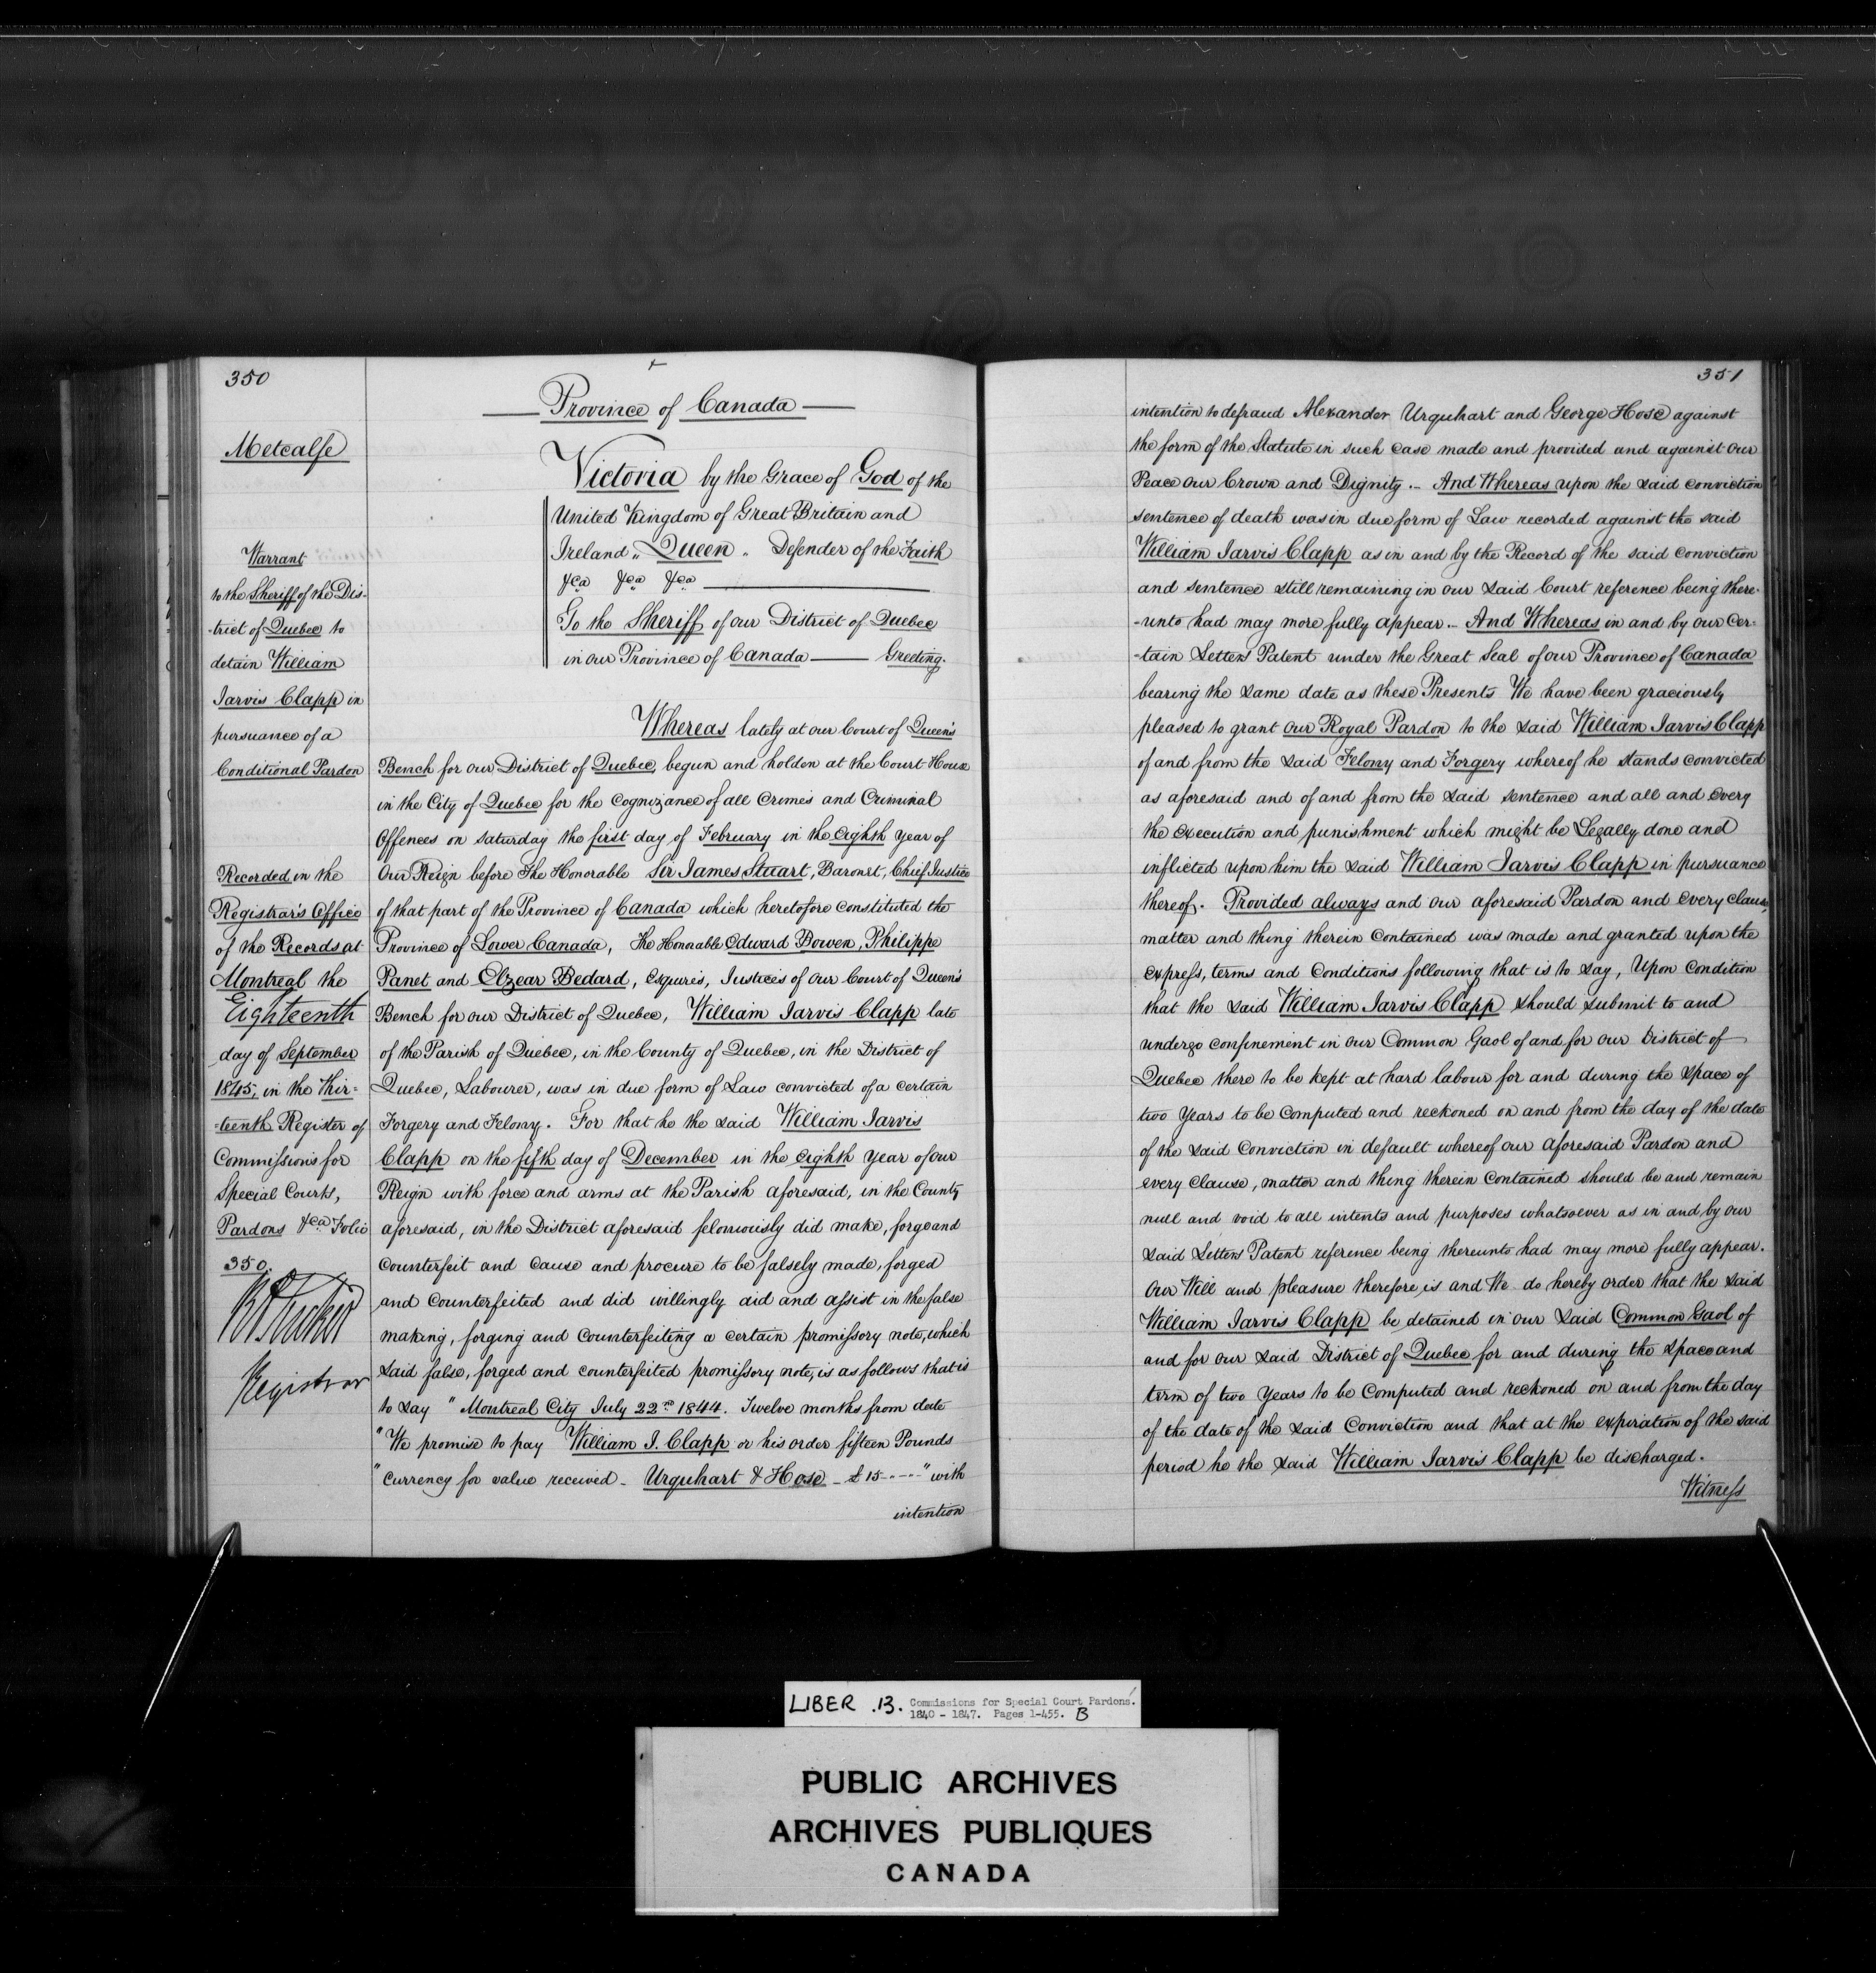 350
Metcalfe
Warrant
to the Sheriff of the Dis-
-trict of Quebec to
detain William
Jarvis Clapp in
pursuance of a
Conditional Pardon
Recorded in the
Registrar's Office
of the Records at
Montreal the
Eighteenth
day of September
1845, in the Thir-
-teenth Register of
Commissions for
Special Courts,
Pardons &ca Folio
350.
Registrar
Province of Canada
Victoria by the Grace of God of the
United Kingdom of Great Britain and
Ireland „ Queen „ Defender of the Faith
&ca &ca &ca
To the Sheriff of our District of Quebec
in our Province of Canada — Greeting.
Whereas lately at our Court of Queen's
Bench for our District of Quebec, begun and holden at the Court House
in the City of Quebec for the Cognizance of all Crimes and Criminal
Offences on Saturday the first day of February in the eighth year of
Our Reign before The Honorable Sir James Stuart, Baronet, Chief Justice
of that part of the Province of Canada which heretofore constituted the
Province of Lower Canada, The Honorable Edward Bowen, Philippe
Panet and Elzear Bedard, Esquires, Justices of our Court of Queen's
Bench for our District of Quebec, William Jarvis Clapp late
of the Parish of Quebec, in the County of Quebec, in the District of
Quebec, Labourer, was in due form of Law convicted of a certain
Forgery and Felony. For that he the said William Jarvis
Clapp on the fifth day of December in the eighth year of our
Reign with force and arms at the Parish aforesaid, in the County
aforesaid, in the District aforesaid feloniously did make, forge and
counterfeit and cause and procure to be falsely made, forged
and counterfeited and did willingly aid and assist in the false
making, forging and counterfeiting a certain promissory note, which
said false, forged and counterfeited promissory note, is as follows that is
to say " Montreal City July 22nd 1844. Twelve months from date
" We promise to pay William J. Clapp or his order fifteen Pounds
" currency for value received - Urquhart & Hose - £15 - - - " with
intention
351
intention to defraud Alexander Urquhart and George Hose against
the form of the Statute in such case made and provided and against our
Peace our Crown and Dignity. - And Whereas upon the said conviction
sentence of death was in due form of Law recorded against the said
William Jarvis Clapp as in and by the Record of the said conviction
and sentence still remaining in our said Court reference being there-
-unto had may more fully appear. - And Whereas in and by our Cer-
-tain Letters Patent under the Great Seal of our Province of Canada
bearing the same date as these Presents We have been graciously
pleased to grant our Royal Pardon to the said William Jarvis Clapp
of and from the said Felony and Forgery whereof he stands convicted
as aforesaid and of and from the said sentence and all and every
the execution and punishment which might be Legally done and
inflicted upon him the said William Jarvis Clapp in pursuance
thereof. Provided always and our aforesaid Pardon and every clause,
matter and thing therein contained was made and granted upon the
express, terms and conditions following that is to say, Upon condition
that the said William Jarvis Clapp should submit to and
undergo confinement in our Common Gaol of and for our District of
Quebec there to be kept at hard labour for and during the space of
two years to be computed and reckoned on and from the day of the date
of the said Conviction in default whereof our aforesaid Pardon and
every clause, matter and thing therein contained should be and remain
null and void to all intents and purposes whatsoever as in and by our
said Letters Patent reference being thereunto had may more fully appear.
Our Will and pleasure therefore is and We do hereby order that the said
William Jarvis Clapp be detained in our said Common Gaol of
and for our said District of Quebec for and during the space and
term of two years to be computed and reckoned on and from the day
of the date of the said Conviction and that at the expiration of the said
period he the said William Jarvis Clapp be discharged.
Witness
LIBER .13. Commissions for Special Court Pardons.
1840 - 1847. Pages 1-455. B
PUBLIC ARCHIVES
ARCHIVES PUBLIQUES
CANADA